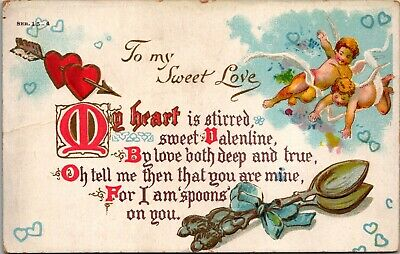 SER. 1 5 - 4
To my
Sweet Love
My heart is stirred,
sweet Valentine,
By love both deep and true,
Oh tell me then that you are mine,
For I am "spoons"
on you.